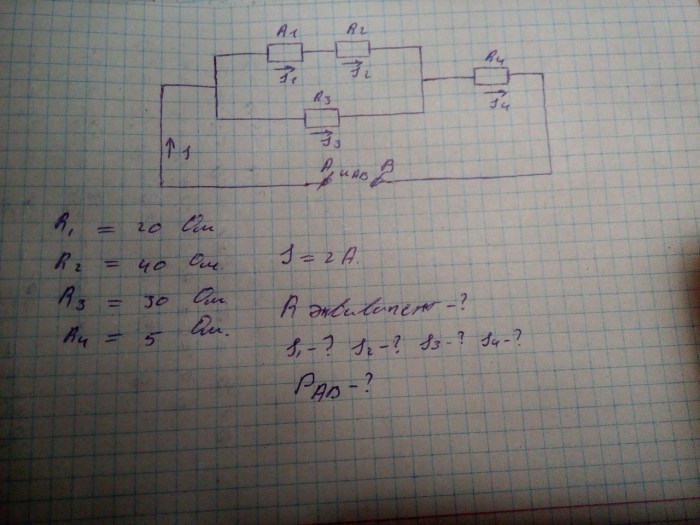 R1 R2
I1 I2
R4
I4
R3
I3
I
A UAB B
R1 = 20 Ом
R2 = 40 Ом
R3 = 30 Ом
R4 = 5 Ом.
I = 2А.
R эквивалент - ?
I1 - ? I2 - ? I3 - ? I4 - ?
PAB - ?